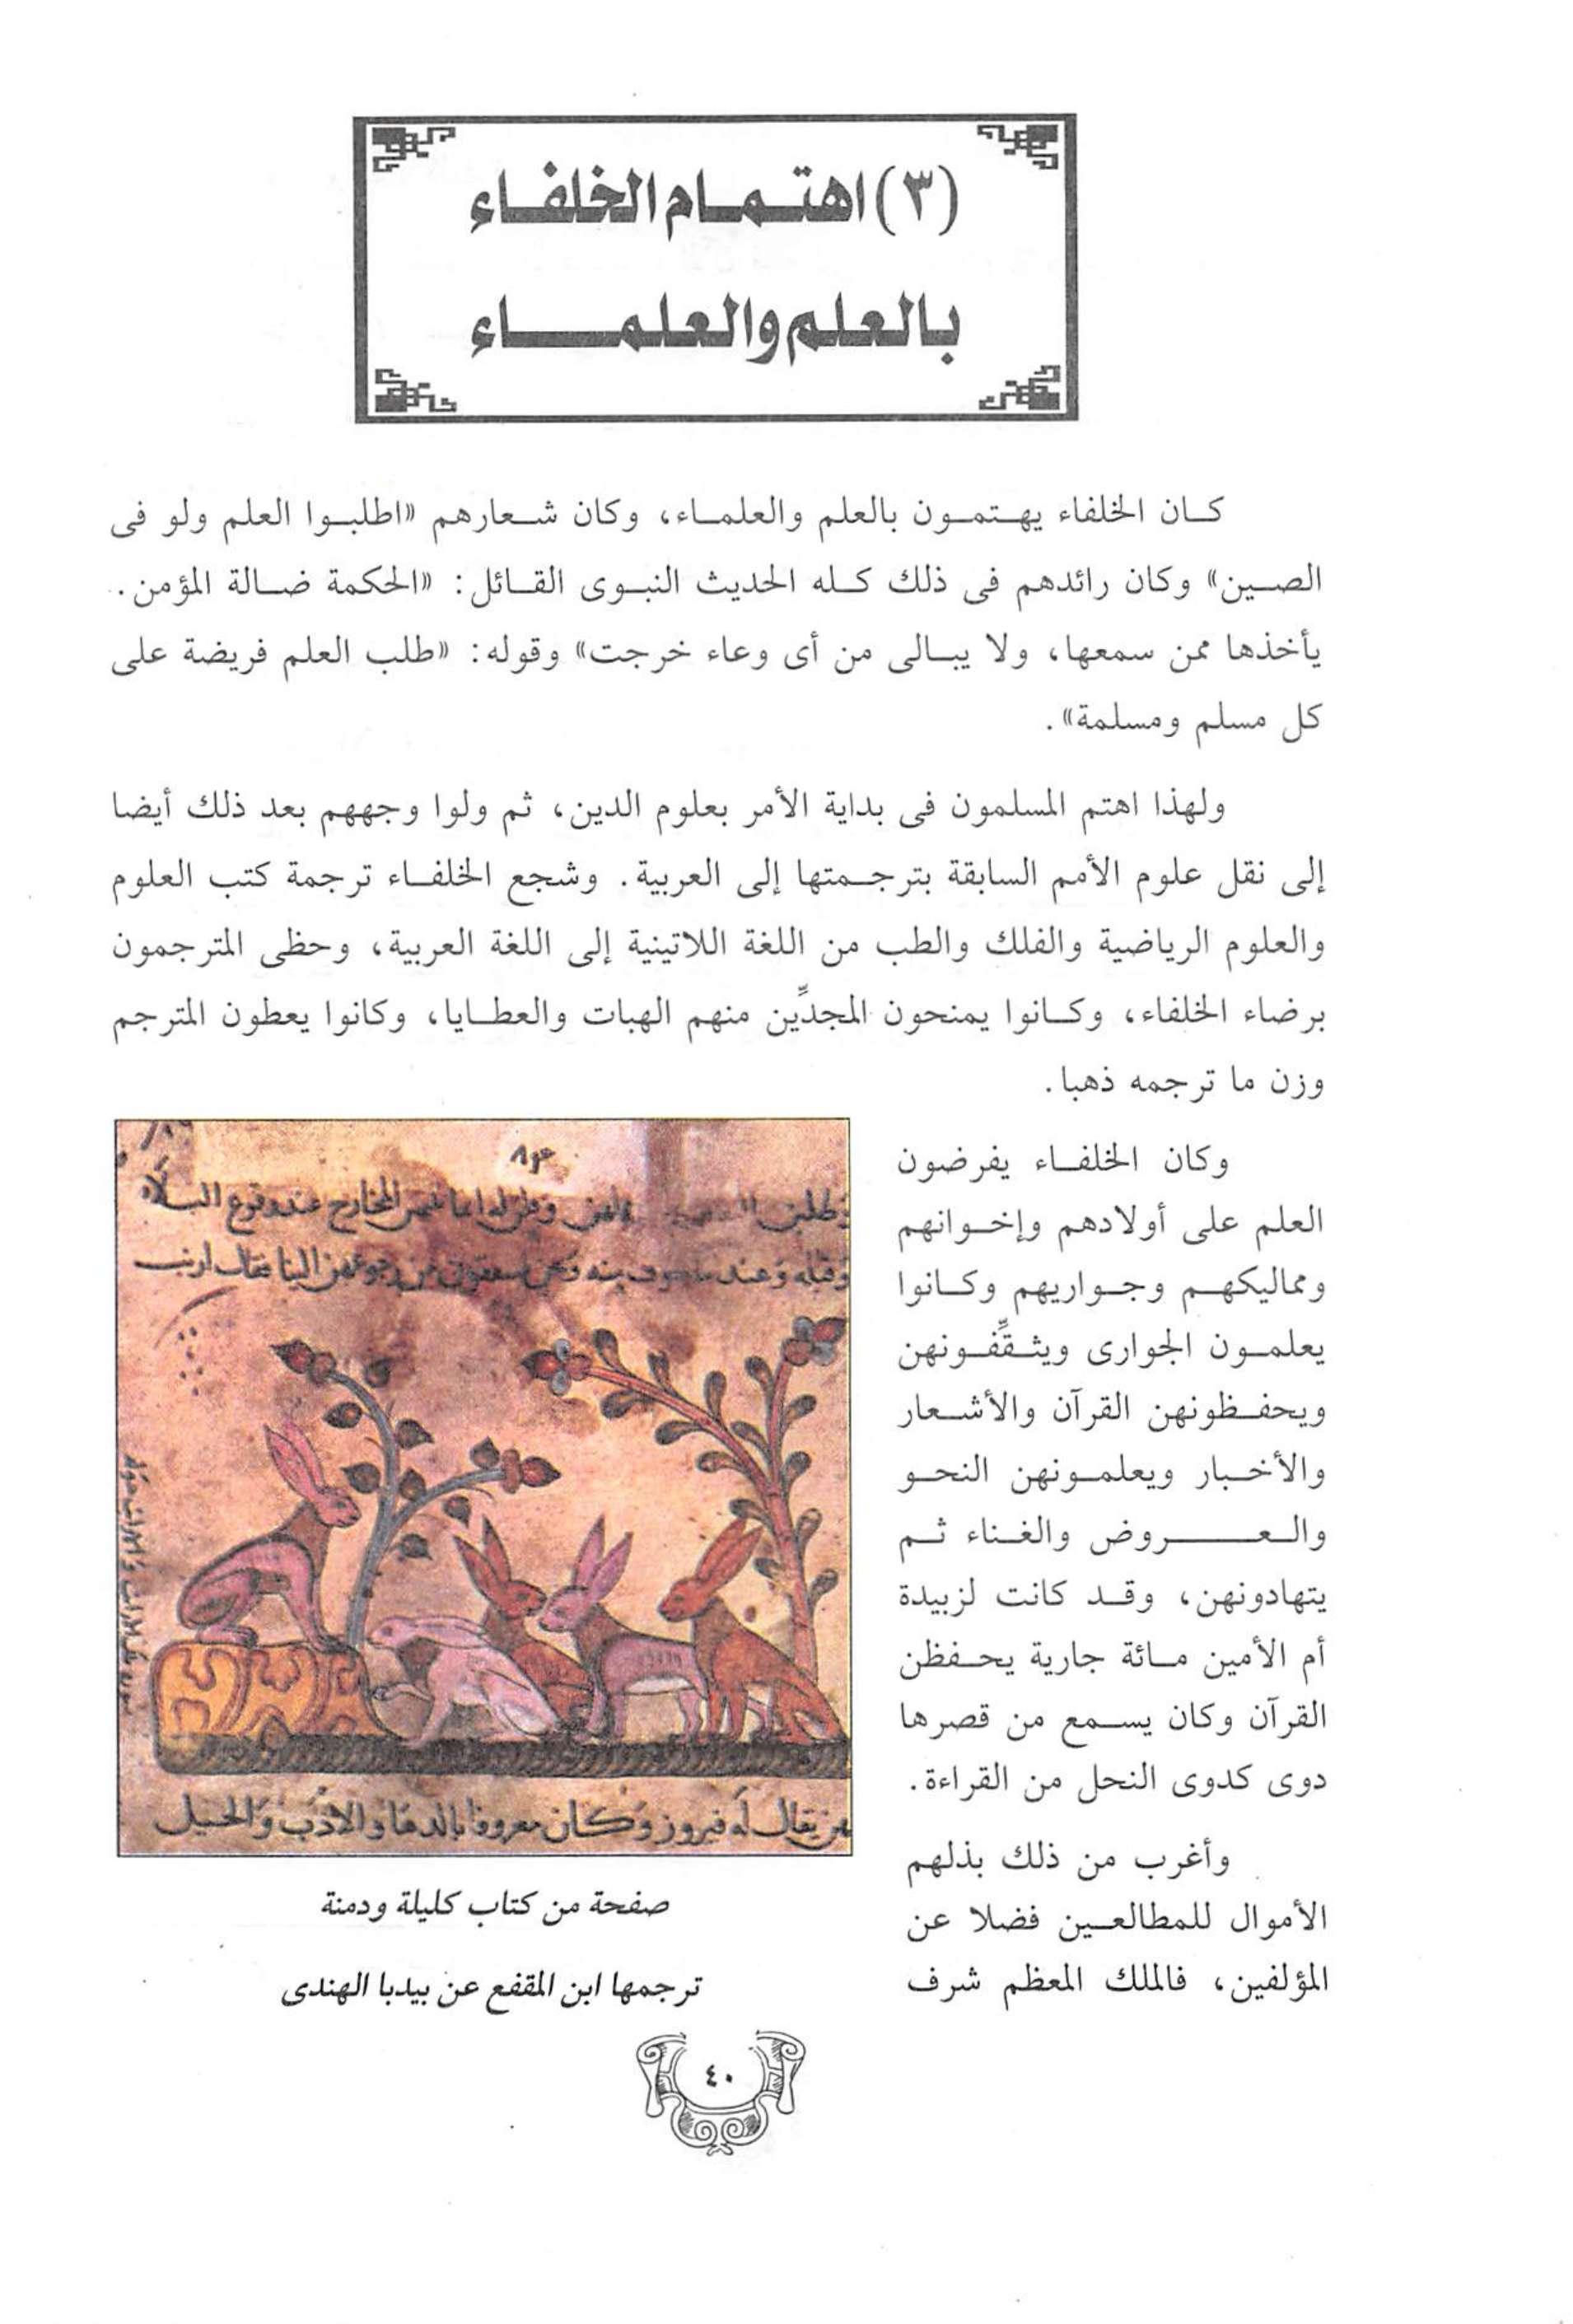 (٣) اهتمام الخلفاء
بالعلم والعلماء
كان الخلفاء يهتمون بالعلم والعلماء، وكان شعارهم «اطلبوا العلم ولو فى
الصين» وكان رائدهم فى ذلك كله الحديث النبوى القائل: «الحكمة ضالة المؤمن.
يأخذها ممن سمعها، ولا يبالى من أى وعاء خرجت» وقوله: «طلب العلم فريضة على
كل مسلم ومسلمة».
ولهذا اهتم المسلمون فى بداية الأمر بعلوم الدين، ثم ولوا وجههم بعد ذلك أيضا
إلى نقل علوم الأمم السابقة بترجمتها إلى العربية. وشجع الخلفاء ترجمة كتب العلوم
والعلوم الرياضية والفلك والطب من اللغة اللاتينية إلى اللغة العربية، وحظى المترجمون
برضاء الخلفاء، وكانوا يمنحون المجدِّين منهم الهبات والعطايا، وكانوا يعطون المترجم
وزن ما ترجمه ذهبا.
وكان الخلفاء يفرضون
العلم على أولادهم وإخوانهم
ومماليكهم وجواريهم وكانوا
يعلمون الجوارى ويثقِّفونهن
ويحفظونهن القرآن والأشعار
والأخبار ويعلمونهن النحو
والعروض والغناء ثم
يتهادونهن، وقد كانت لزبيدة
أم الأمين مائة جارية يحفظن
القرآن وكان يسمع من قصرها
دوى كدوى النحل من القراءة.
وأغرب من ذلك بذلهم
الأموال للمطالعين فضلا عن
المؤلفين، فالملك المعظم شرف
عند وقوع البلاء
الينا فقال ارنب
يقال له فيروز وكان معروفا بالدها والادب والحيل
صفحة من كتاب كليلة ودمنة
ترجمها ابن المقفع عن بيدبا الهندى
٤٠